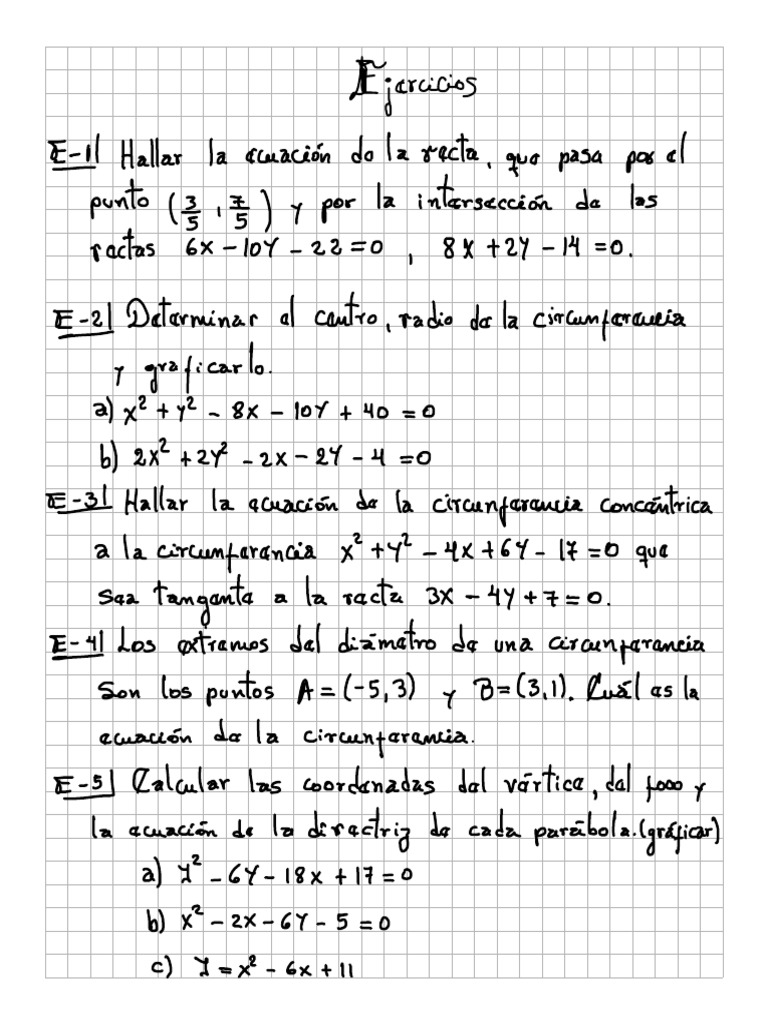 Ejercicios
E-1| Hallar la ecuación de la recta, que pasa por el
punto (3/5, 7/5) y por la intersección de las
rectas 6x - 10y - 22 = 0, 8x + 2y - 14 = 0.
E-2| Determinar el centro, radio de la circunferencia
y graficarlo.
a) x² + y² - 8x - 10y + 40 = 0
b) 2x² + 2y² - 2x - 2y - 4 = 0
E-3| Hallar la ecuación de la circunferencia concéntrica
a la circunferencia x² + y² - 4x + 6y - 17 = 0 que
sea tangente a la recta 3x - 4y + 7 = 0.
E-4| Los extremos del diámetro de una circunferencia
son los puntos A = (-5,3) y B = (3,1). Cuál es la
ecuación de la circunferencia.
E-5| Calcular las coordenadas del vértice, del foco y
la ecuación de la directriz de cada parábola. (gráficar)
a) y² - 6y - 18x + 17 = 0
b) x² - 2x - 6y - 5 = 0
c) y = x² - 6x + 11